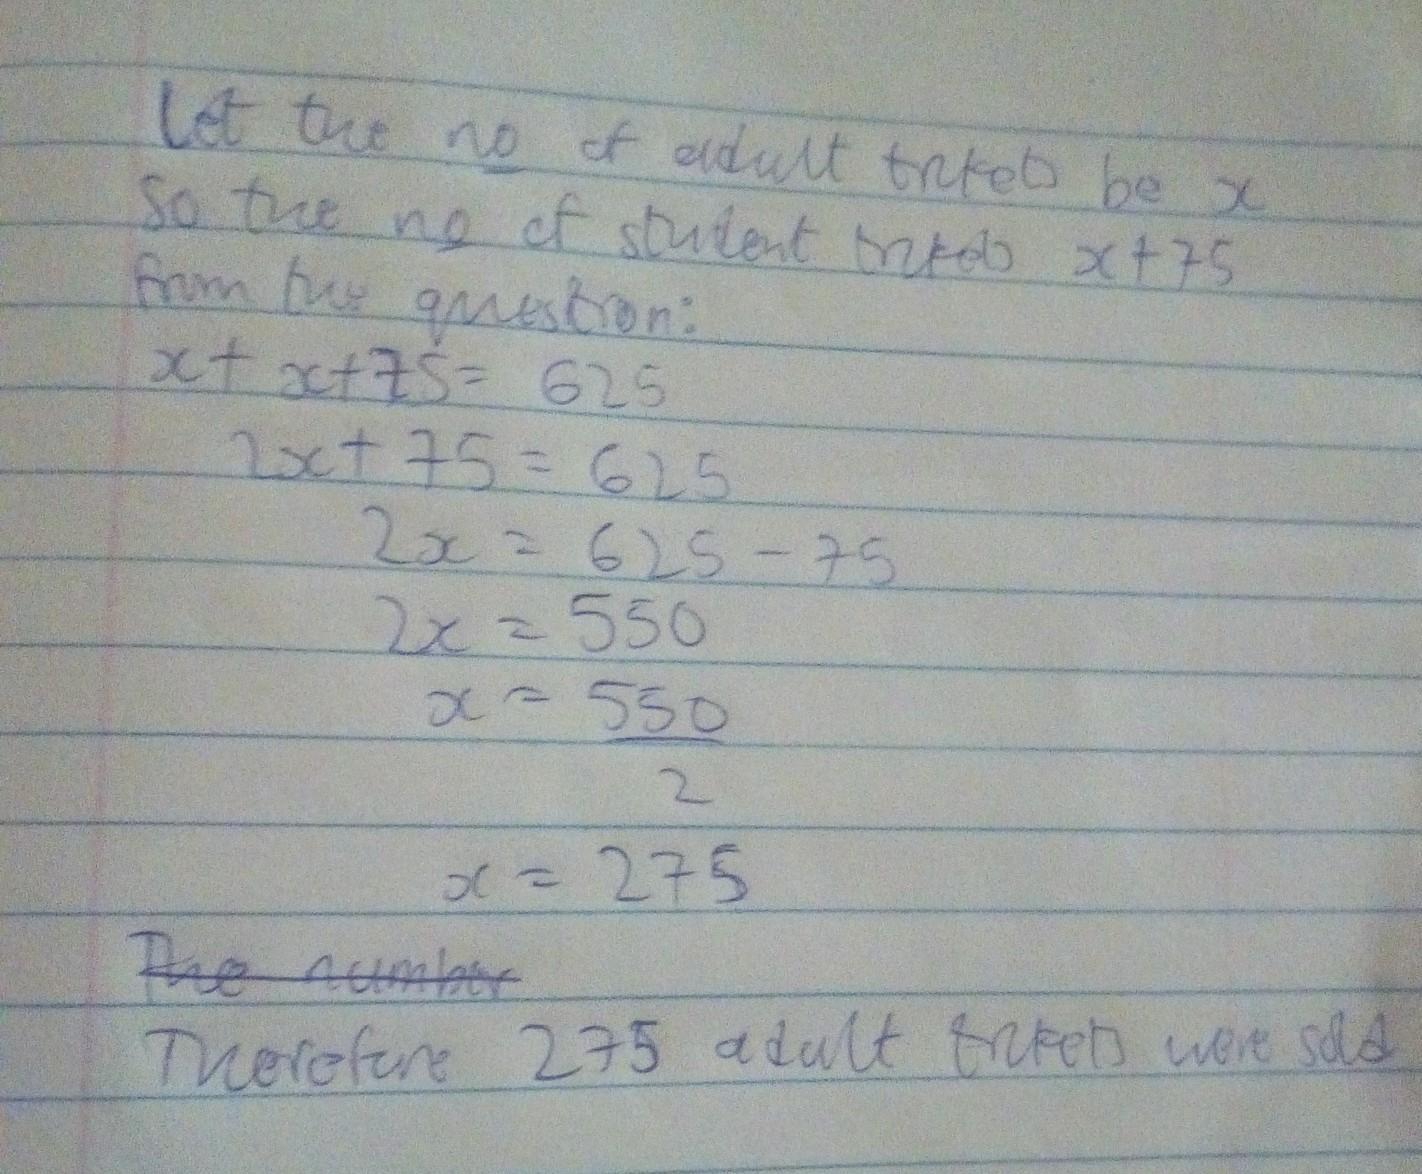 Let the no of adult tickets be x
So the no of student tickets x+75
from the question:
x+ x+75= 625
2x+ 75= 625
2x = 625 - 75
2x = 550
x = 550
2
x = 275
The number
Therefore 275 adult tickets were sold